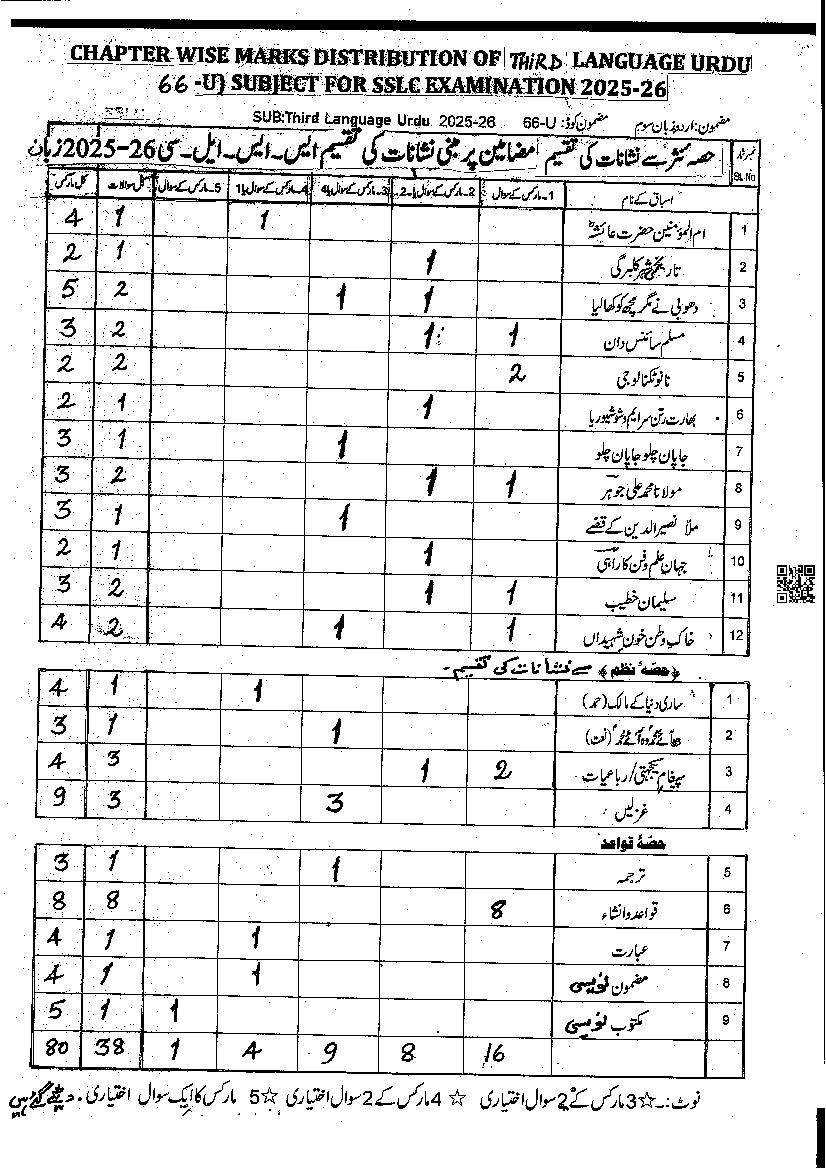 CHAPTER WISE MARKS DISTRIBUTION OF THIRD LANGUAGE URDU
66 -U) SUBJECT FOR SSLC EXAMINATION 2025-26
مضمون: اردو زبان سوم مضمون کوڈ: 66-U SUB:Third Language Urdu 2025-26
نمبر شمار SL.No حصہ نثر سے نشانات کی تقسیم مضامین پر مبنی نشانات کی تقسیم ایس۔ ایس۔ ایل۔ سی 26-2025 زبان
اسباق کے نام 1۔ مارکس کے سوال 2۔ مارکس کے سوال 3۔ مارکس کے سوال 4۔ مارکس کے سوال 5۔ مارکس کے سوال کل سوالات کل مارکس
1 ام المؤمنین حضرت عائشہؓ 1 1 4
2 تاریخی شہر گلبرگی 1 1 2
3 دھوبی نے مگر مچھ کو کھا لیا 1 1 2 5
4 مسلم سائنس دان 1 1 2 3
5 نانو ٹکنالوجی 2 2 2
6 بھارت رتن سر ایم وشویشوریا 1 1 2
7 جاپان چلو جاپان چلو 1 1 3
8 مولانا محمد علی جوہر 1 1 2 3
9 ملا نصیر الدین کے قصے 1 1 3
10 جہان علم و فن کا راہی 1 1 2
11 سلیمان خطیب 1 1 2 3
12 خاک وطن خون شہیداں 1 1 2 4
﴿حصۂ نظم﴾ سے نشانات کی تقسیم۔
1 ساری دنیا کے مالک (حمد) 1 1 4
2 (نعت) 1 1 3
3 پیغام یکجہتی/رباعیات 2 1 3 4
4 غزلیں 3 3 9
حصۂ قواعد
5 ترجمہ 1 1 3
6 قواعد و انشاء 8 8 8
7 عبارت 1 1 4
8 مضمون نویسی 1 1 4
9 مکتوب نویسی 1 1 5
16 8 9 4 1 38 80
نوٹ:۔ ☆3 مارکس کے 2 سوال اختیاری ☆ 4 مارکس کے 2 سوال اختیاری ☆5 مارکس کا ایک سوال اختیاری۔ دیئے گئے ہیں